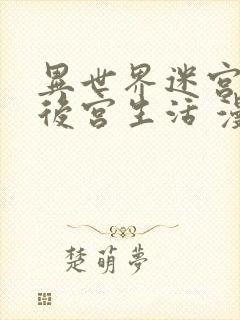 異世界迷宮
後宮生活 漫
楚萌夢